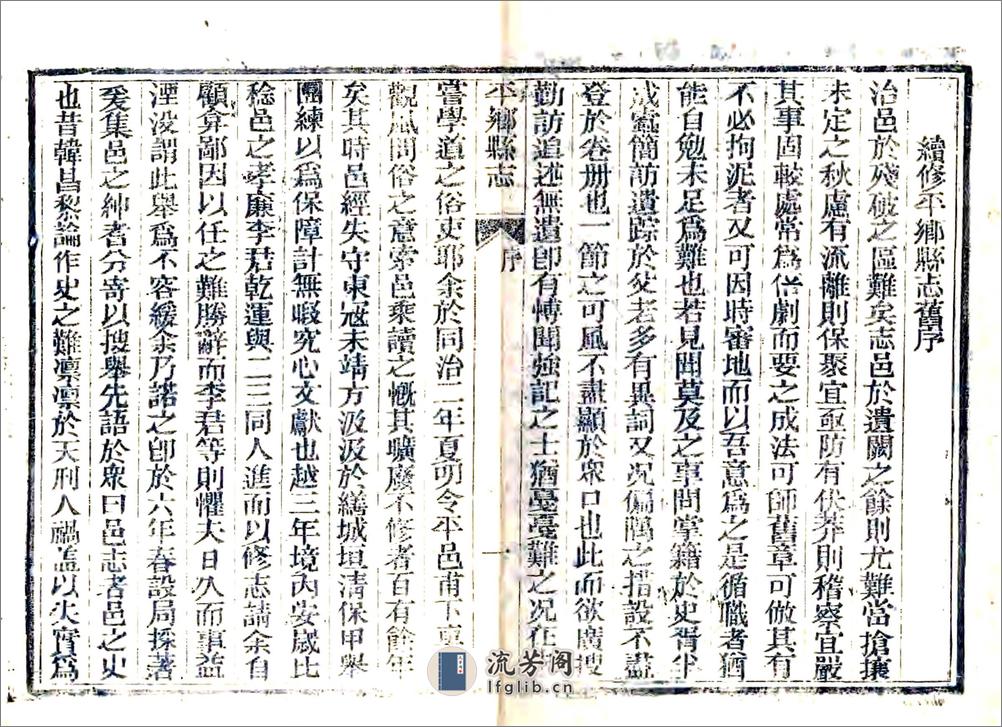 續修平鄉縣志舊序
治邑於殘破之區難矣志邑於遺闕之餘則尤難當搶攘
未定之秋慮有流離則保聚宜亟防有伏莽則稽察宜嚴
其事固較處常為倍劇而要之成法可師舊章可倣其有
不必拘泥者又可因時審地而以吾意為之是循職者猶
能自勉未足為難也若見聞莫及之事問掌籍於史胥半
成蠹簡訪遺踪於父老多有異詞又况偏隅之措設不盡
登於卷冊也一節之可風不盡顯於眾口也此而欲廣搜
勤訪追述無遺即有博聞強記之士猶戞戞難之况在未
平鄉縣志
序
一
嘗學道之俗吏耶余於同治二年夏叨令平邑甫下車
觀風問俗之意索邑乘讀之慨其曠廢不修者百有餘年
矣其時邑經失守東寇未靖方汲汲於繕城垣清保甲舉
團練以為保障計無暇究心文獻也越三年境內安歲比
稔邑之孝廉李君乾運與二三同人進而以修志請余自
顧弇鄙因以任之難勝辭而李君等則懼夫日久而事益
湮没謂此舉為不容緩余乃諾之即於六年春設局採著
爰集邑之紳耆分寄以搜舉先語於眾曰邑志者邑之史
也昔韓昌黎論作史之難凛凛於天刑人禍盖以失實為
流芳阁
lfglib.cn